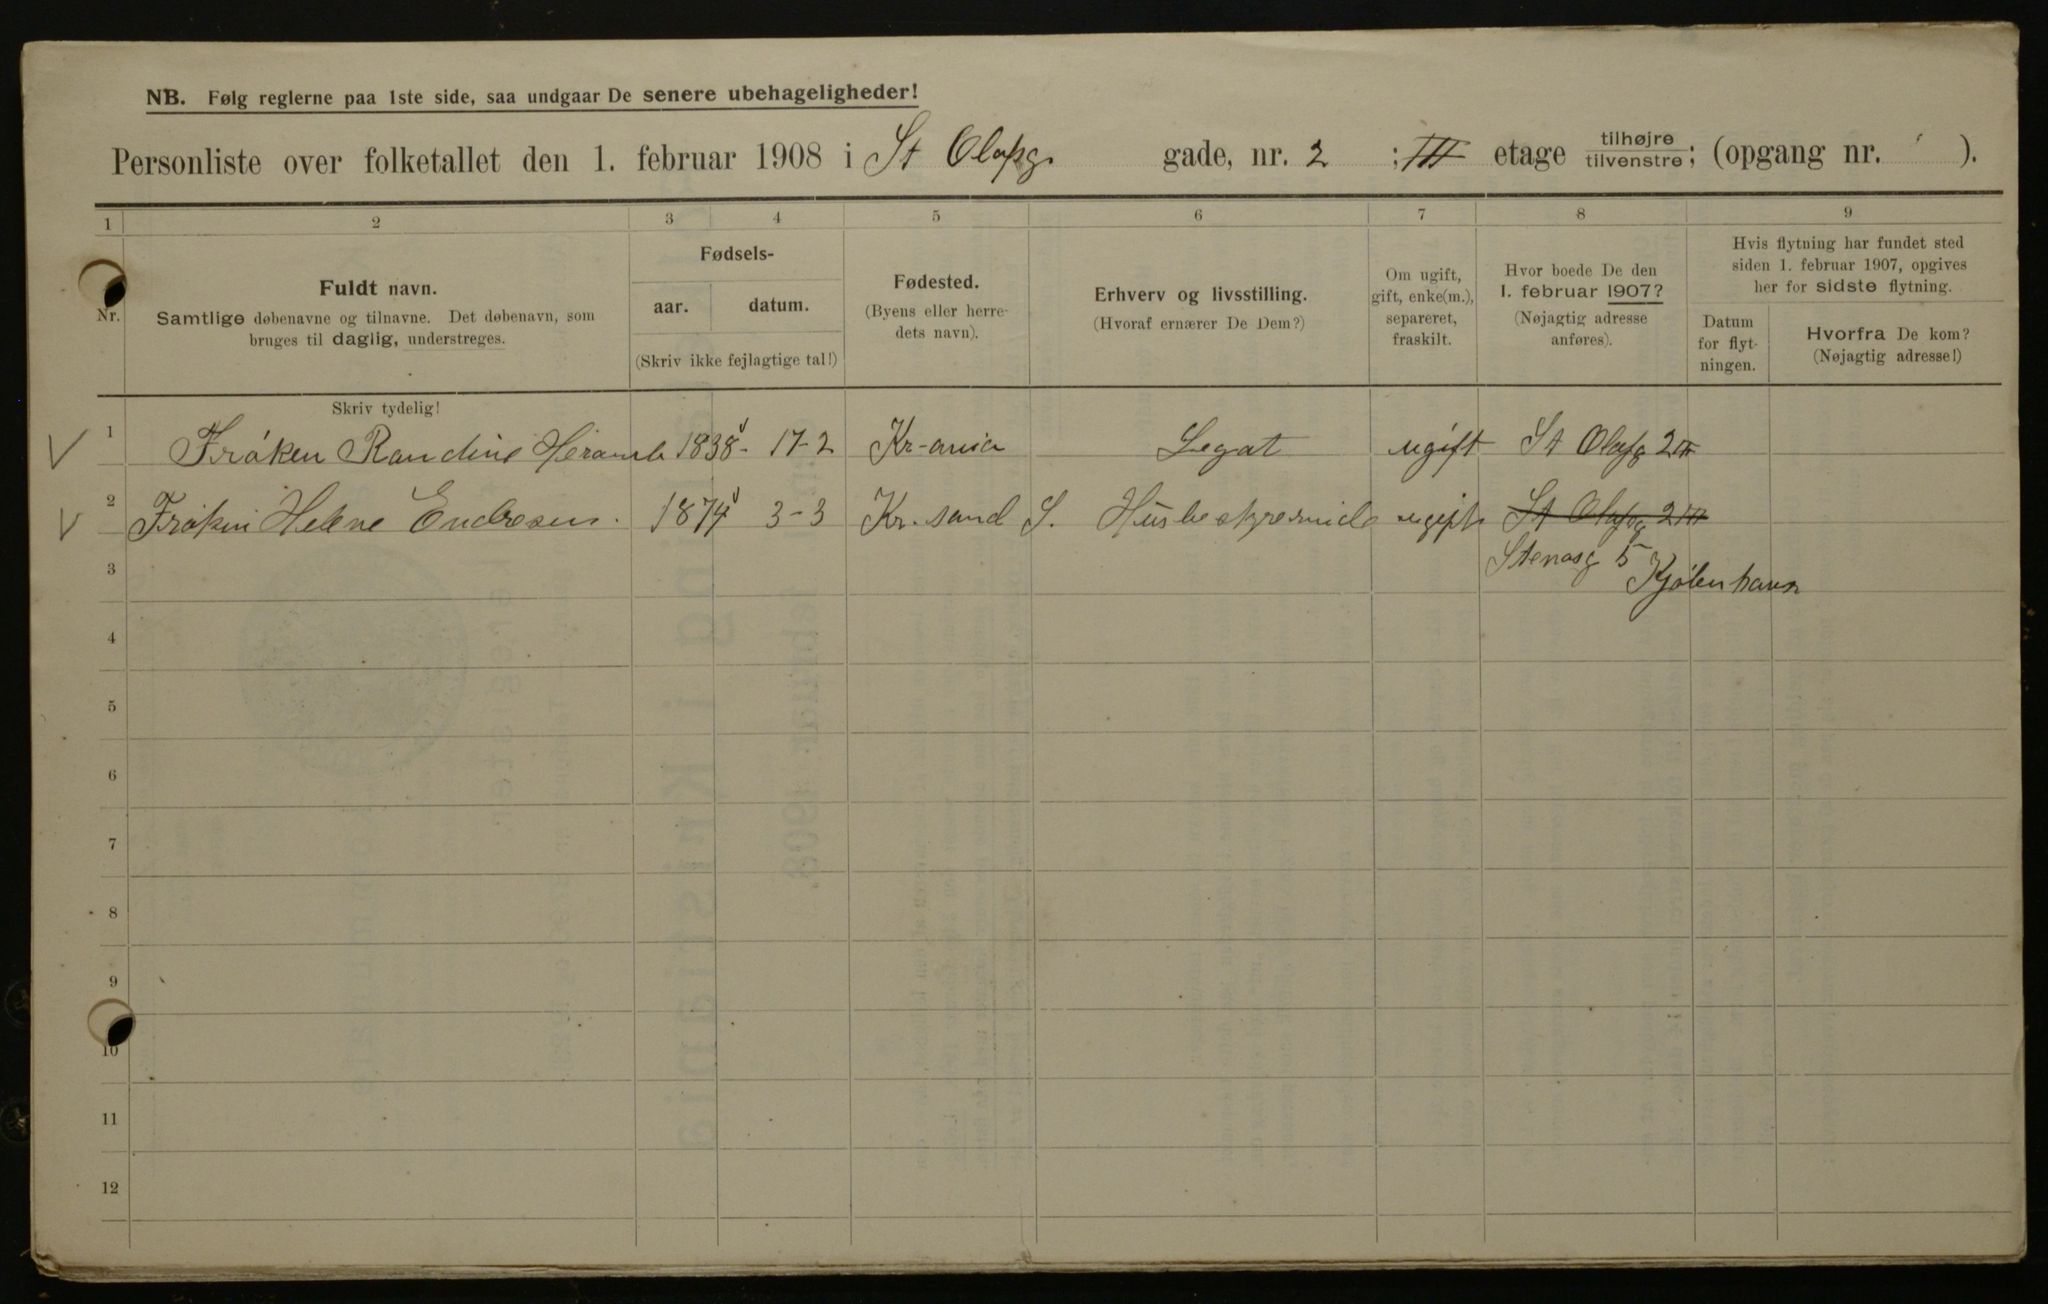 NB. Følg reglerne paa 1ste side, saa undgaar De senere ubehageligheder!
Personliste over folketallet den 1. februar 1908 i St Olafsg. gade, nr. 2 ; III etage tilhøjre tilvenstre; (opgang nr. ).
1 2 3 4 5 6 7 8 9
Nr.
Fuldt navn.
Samtlige døbenavne og tilnavne. Det døbenavn, som
bruges til daglig, understreges.
Fødsels-
aar. datum.
(Skriv ikke fejlagtige tal!)
Fødested.
(Byens eller herre-
dets navn).
Erhverv og livsstilling.
(Hvoraf ernærer De Dem?)
Om ugift,
gift, enke(m.),
separeret,
fraskilt.
Hvor boede De den
1. februar 1907?
(Nøjagtig adresse
anføres).
Hvis flytning har fundet sted
siden 1. februar 1907, opgives
her for sidste flytning.
Datum
for flyt-
ningen.
Hvorfra De kom?
(Nøjagtig adresse!)
Skriv tydelig!
1 Frøken Randine Heramb 1838 - 17-2 Kr-ania Legat ugift St Olafsg 2 III
2 Frøken Helene Endresen. 1874 3-3 Kr. sand S. Husbestyrerinde ugift St Olafsg 2 III
3 Stenosg 5 Kjøbenhavn
4
5
6
7
8
9
10
11
12